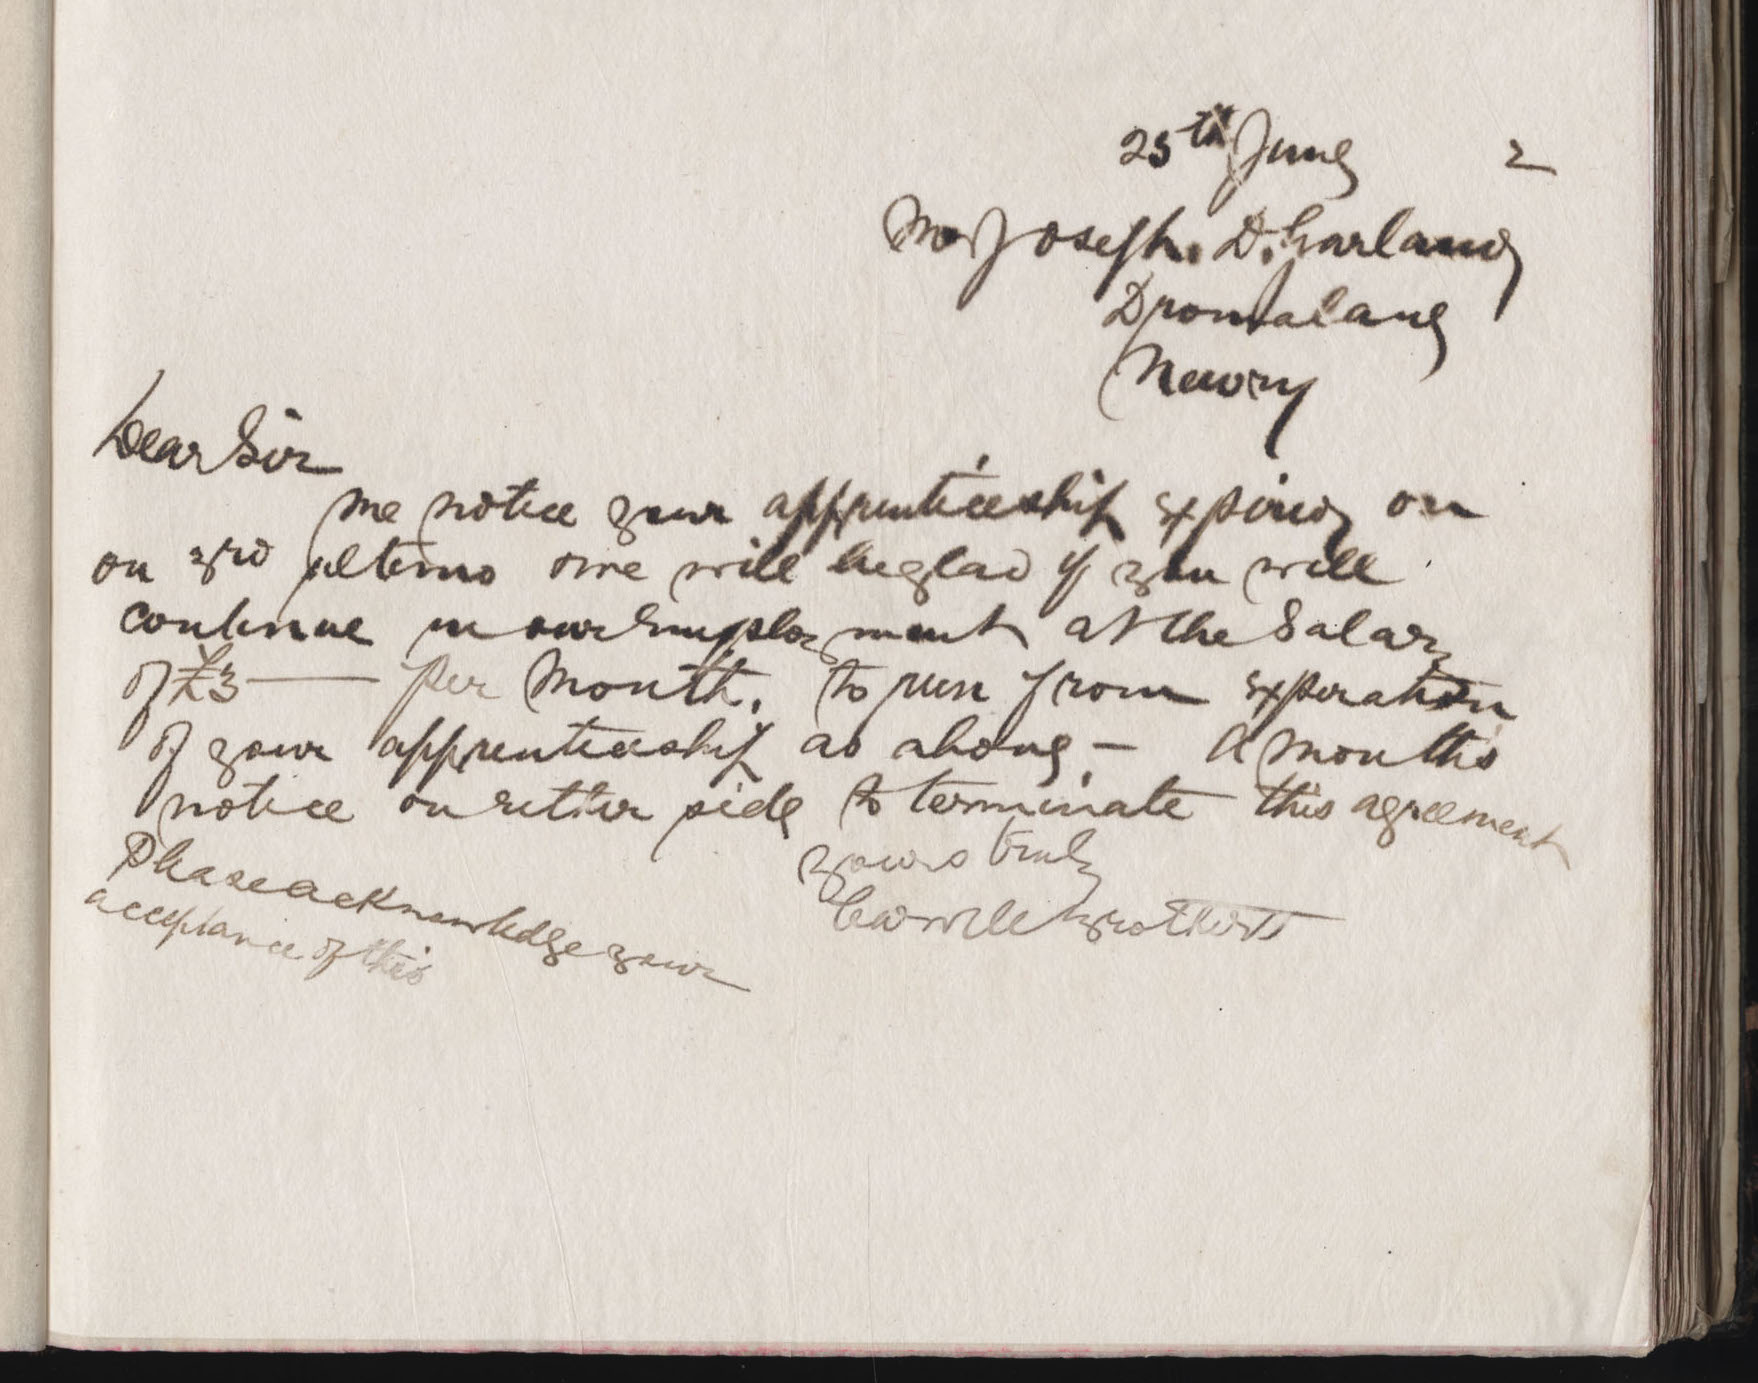 25th June 2
Mr Joseph. D. Garland
Dromalane
Newry
Dear Sir
We notice your apprenticeship expired on
on 3rd ultimo & we will be glad if you will
continue in our Employment at the Salary
of £3 — per Month. to run from expiration
of your apprenticeship as above — A months
notice on either side to terminate this agreement
yours truly
Brothers
Please acknowledge your
acceptance of this